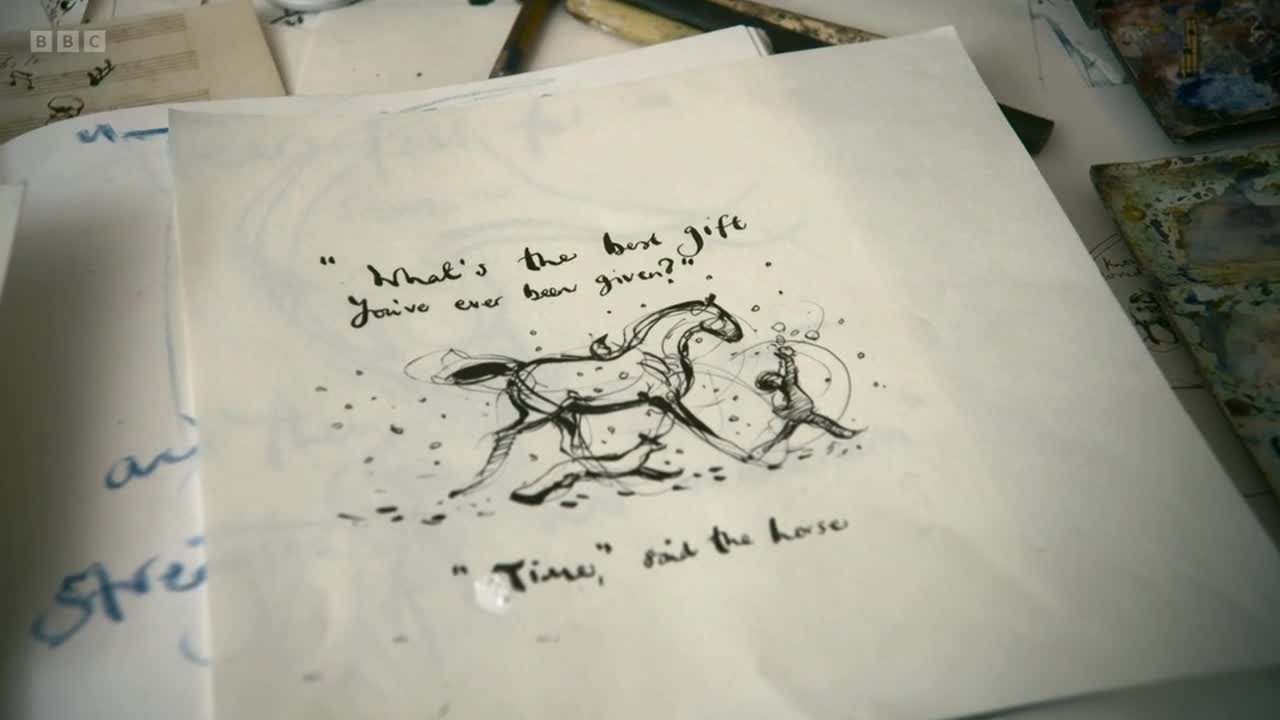 BBC
"What's the best gift
You've ever been given?"
"Time," said the horse